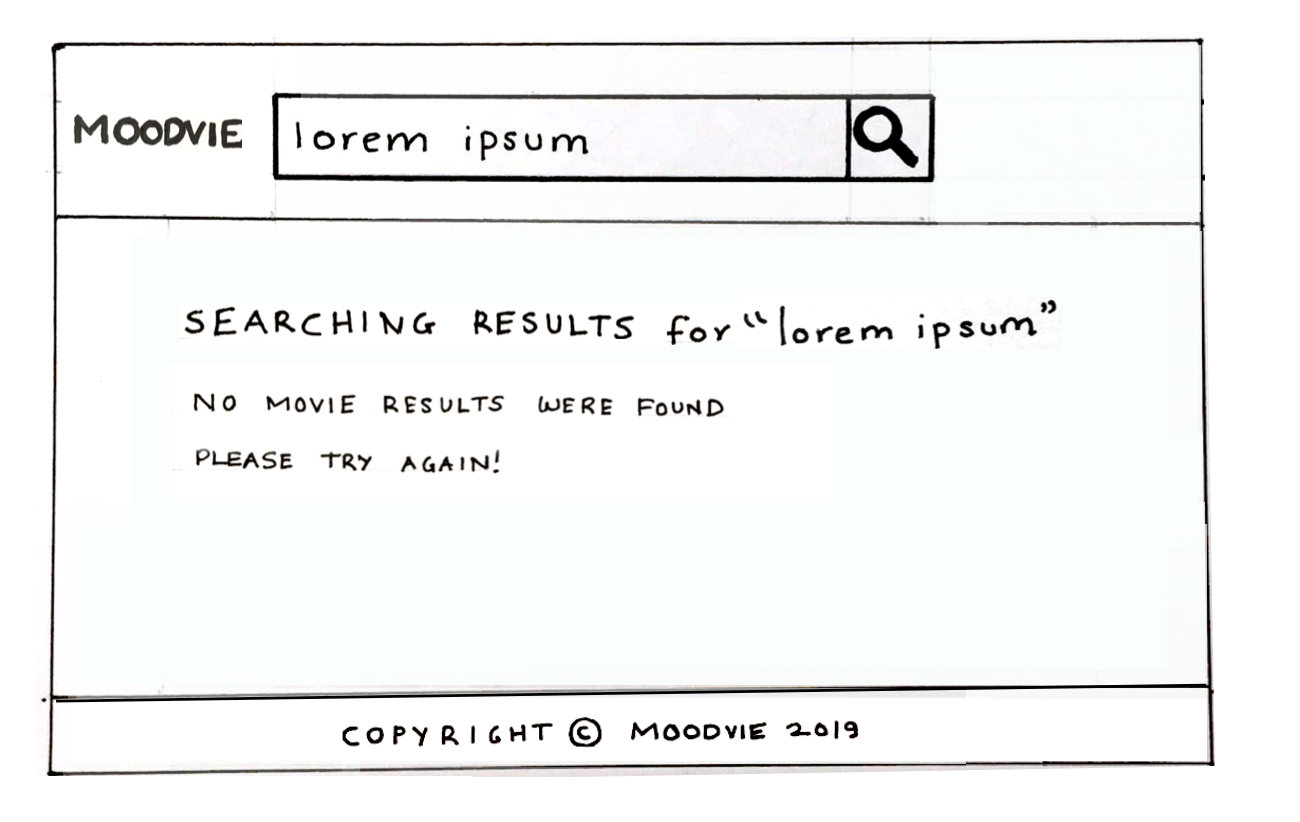 MOODVIE lorem ipsum
SEARCHING RESULTS for “lorem ipsum”
NO MOVIE RESULTS WERE FOUND
PLEASE TRY AGAIN!
COPYRIGHT © MOODVIE 2019